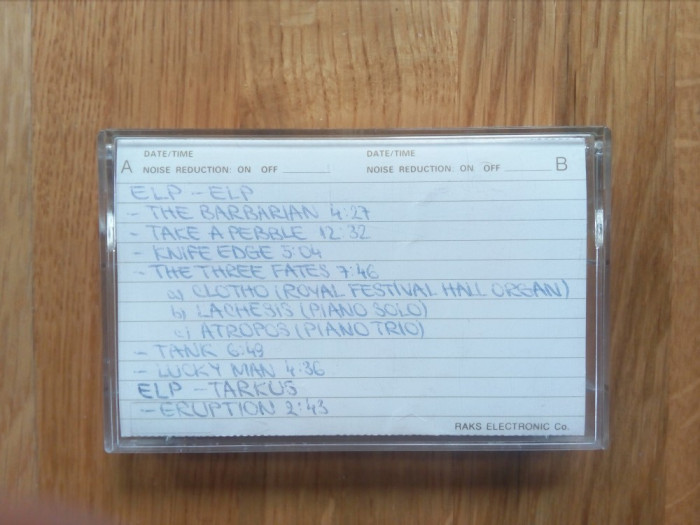 DATE/TIME DATE/TIME
A NOISE REDUCTION: ON OFF NOISE REDUCTION: ON OFF B
ELP - ELP
- THE BARBARIAN 4:27
- TAKE A PEBBLE 12:32
- KNIFE EDGE 5:04
- THE THREE FATES 7:46
a) CLOTHO (ROYAL FESTIVAL HALL ORGAN)
b) LACHESIS (PIANO SOLO)
c) ATROPOS (PIANO TRIO)
- TANK 6:49
- LUCKY MAN 4:36
ELP - TARKUS
- ERUPTION 2:43
RAKS ELECTRONIC Co.